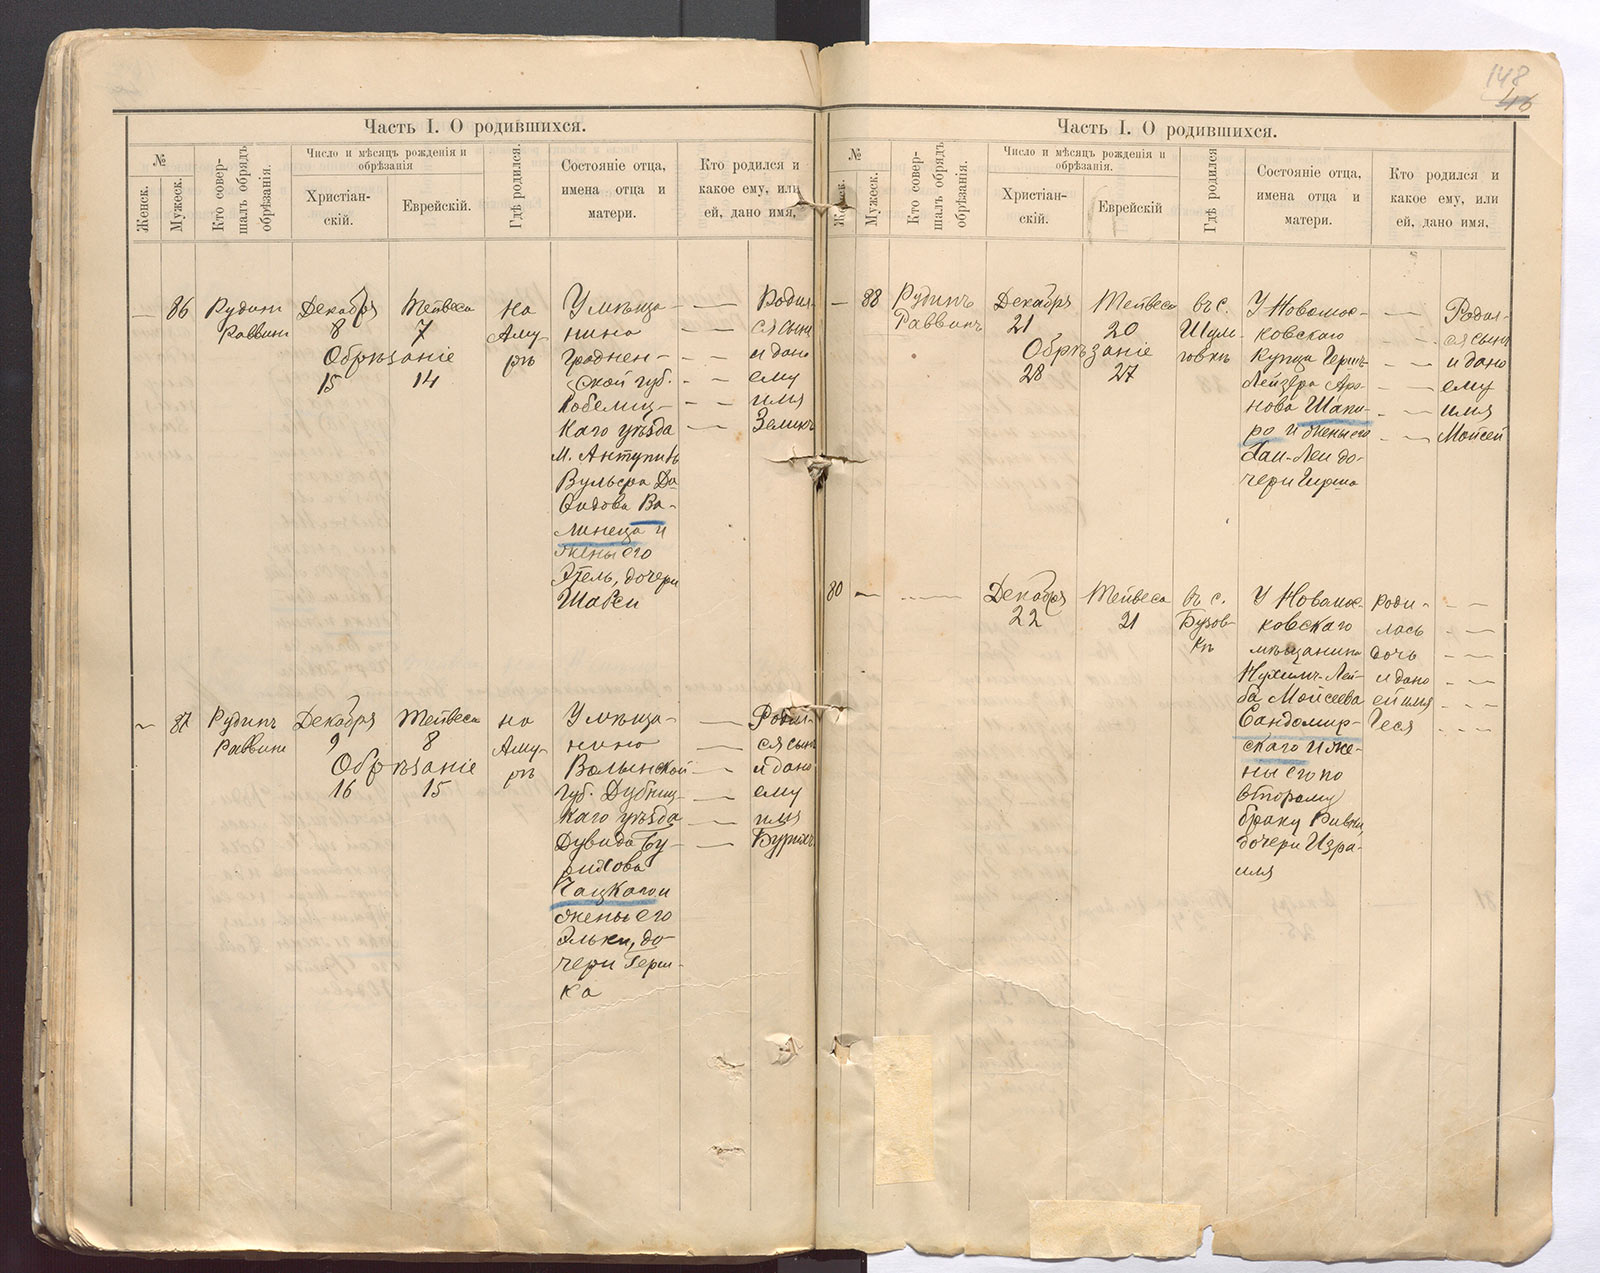 148
46
Часть I. О родившихся.
№
Женск.
Мужеск.
Кто совер-
шалъ обрядъ
обрѣзанія.
Число и мѣсяцъ рожденія и
обрѣзанія
Христіан-
скій.
Еврейскій.
Гдѣ родился.
Состояніе отца,
имена отца и
матери.
Кто родился и
какое ему, или
ей, дано имя,
— 86
Рудинъ
Раввинъ
Декабря
8
Тейвеса
7
Обрѣзаніе
15 14
на
Аму-
рѣ
У мѣща-
нина
Граднен-
ской губ.
Кобелиц-
каго уѣзда
М. Антуполь
Вульфа Да-
видова Во-
линеца и
жены его
Этель, дочери
Шаѳси
Родил-
ся сынъ
и дано
ему
имя
Зеликъ
— 87
Рудинъ
Раввинъ
Декабря
9
Тейвеса
8
Обрѣзаніе
16 15
на
Аму-
рѣ
У мѣща-
нина
Волынской
губ. Дубниц-
каго уѣзда
Дувида Бу-
рихова
Чацкаго и
жены его
Эльки, до-
чери Герш-
ка
Родил-
ся сынъ
и дано
ему
имя
Бурихъ
Часть I. О родившихся.
№
Женск.
Мужеск.
Кто совер-
шалъ обрядъ
обрѣзанія.
Число и мѣсяцъ рожденія и
обрѣзанія.
Христіан-
скій.
Еврейскій
Гдѣ родился
Состояніе отца,
имена отца и
матери.
Кто родился и
какое ему, или
ей, дано имя,
— 88
Рудинъ
Раввинъ
Декабря
21
Тейвеса
20
Обрѣзаніе
28 27
въ с.
Шул-
говкѣ
У Новомос-
ковскаго
купца Герш-
Лейзера Аро-
нова Шапи-
ро и жены его
Хаи-Леи до-
чери Гирша
Родил-
ся сынъ
и дано
ему
имя
Мойсей
80 —
Декабря
22
Тейвеса
21
въ с.
Бузов-
кѣ
У Новомос-
ковскаго
мѣщанина
Нухимъ-Лей-
ба Мойсеева
Сандомир-
скаго и же-
ны его по
второму
браку Ривки,
дочери Изра-
иля
Роди-
лась
дочь
и дано
ей имя
Геся